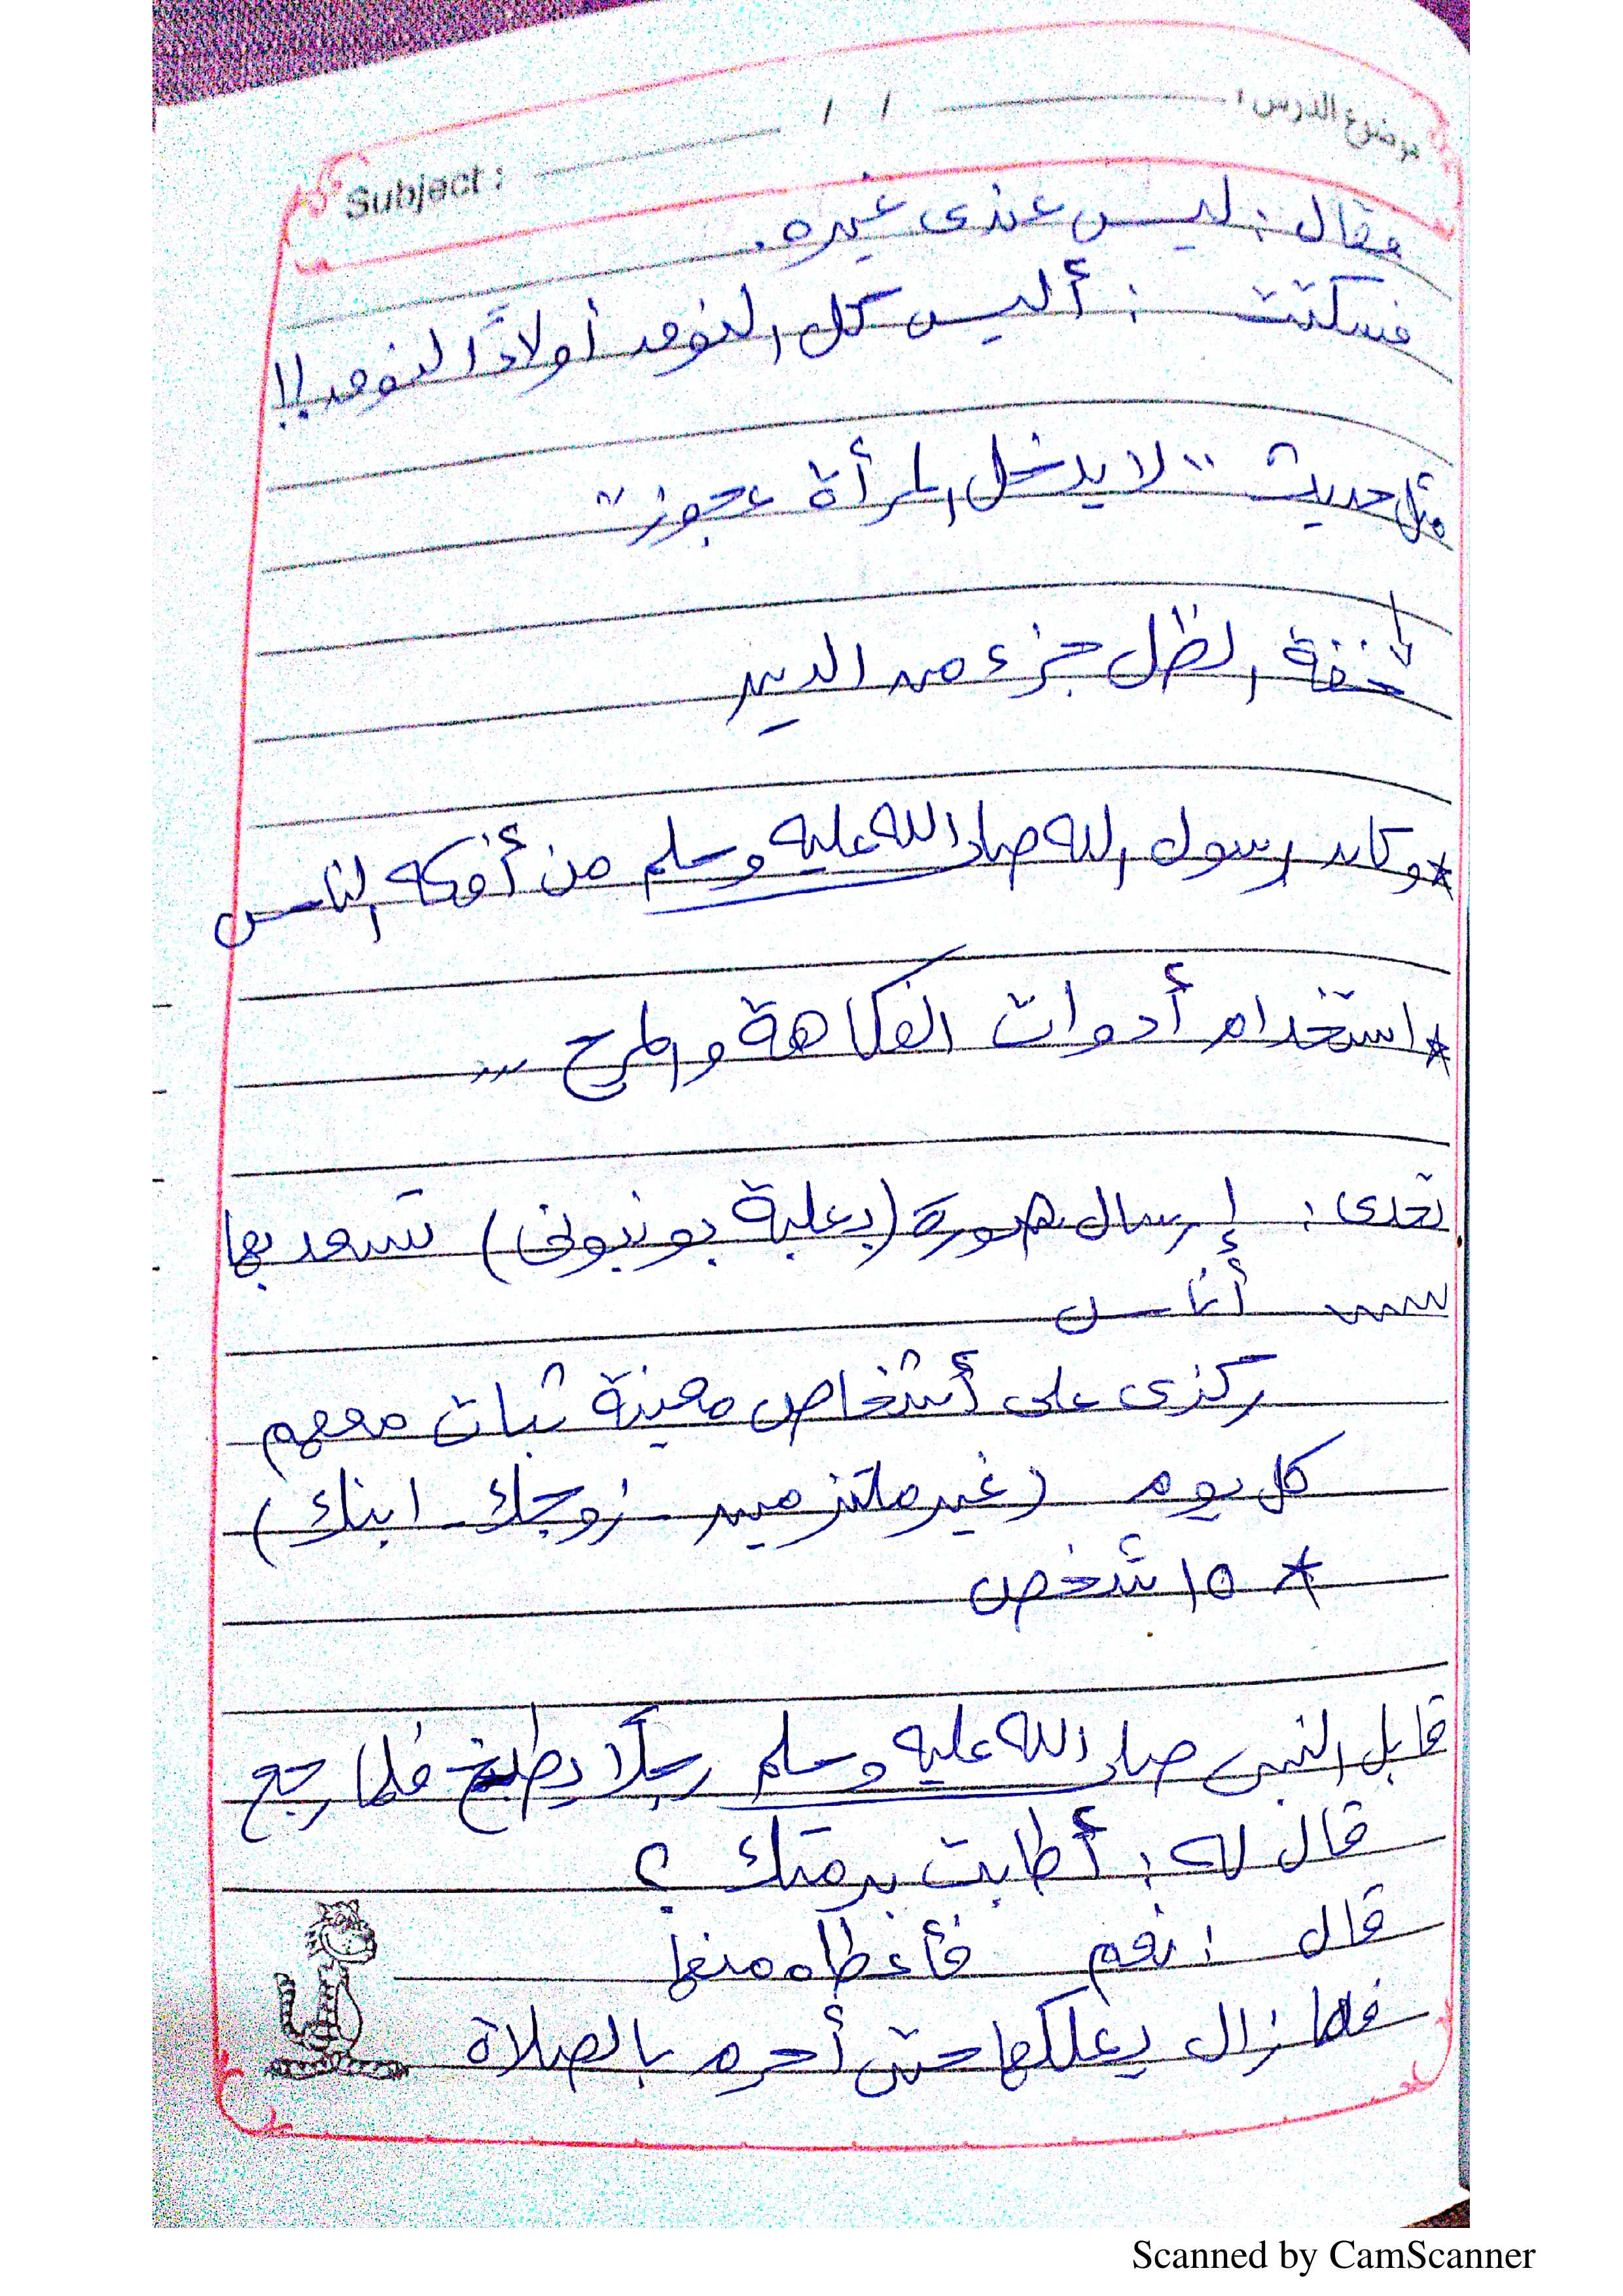 موضوع الدرس :
/ /
Subject :
فقال : ليس عندى غيره .
فسكتت : أليس كل النوق أولادًا لنوق !!
مثل حديث " لا يدخل المرأة عجوز "
خفة الظل جزء من الدين
* وكان رسول الله صلى الله عليه وسلم من أفكه الناس
* استخدام أدوات الفكاهة والمرح ...
تحدى : إرسال صورة (بعلبة بونبونى) تسعد بها
أناس
ركزى على أشخاص معينة ثبات معهم
كل يوم (غير ملتزمين - زوجك - ابنك)
* ١٥ شخص
قابل النبى صلى الله عليه وسلم رجلًا يطبخ فلما رجع
قال له : أطابت برمتك ؟
قال : نعم فأعطاه منها
فما زال يعلكها حتى أحرم بالصلاة
Scanned by CamScanner